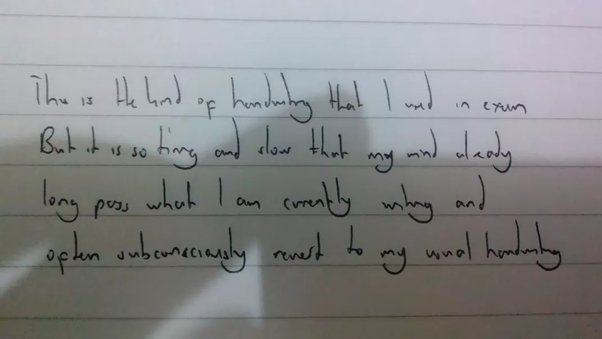 This is the kind of handwriting that I used in exam
But it is so tiring and slow that my mind already
long pass what I am currently writing and
often subconsciously revert to my usual handwriting